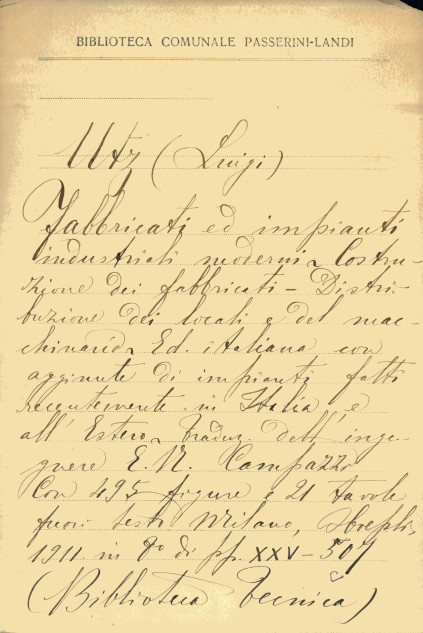 BIBLIOTECA COMUNALE PASSERINI-LANDI
Utz (Luigi)
Fabbricati ed impianti
industriali moderni. Costru-
zione dei fabbricati - Distri-
buzione dei locali e del mac-
chinario. Ed. italiana con
aggiunte di impianti fatti
recentemente in Italia e
all'Estero. Traduz. dell'inge-
gnere E. N. Campazzi
Con 495 figure e 21 tavole
fuori testo Milano, Hoepli,
1911 in 8º di pp. XXV-507
(Biblioteca Tecnica)